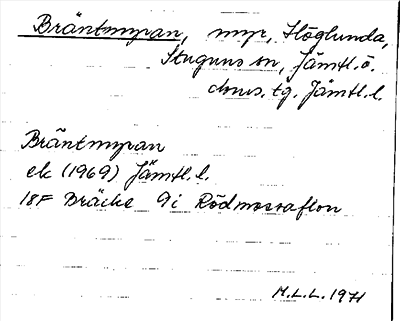 Bräntmyran, myr, Höglunda,
Stuguns sn, Jämtl.ö.
dms. tg. Jämtl.l.
Bräntmyran
ek (1969) Jämtl.l.
18F Bräcke 9i Rödmossaflon
M.L.L. 1971